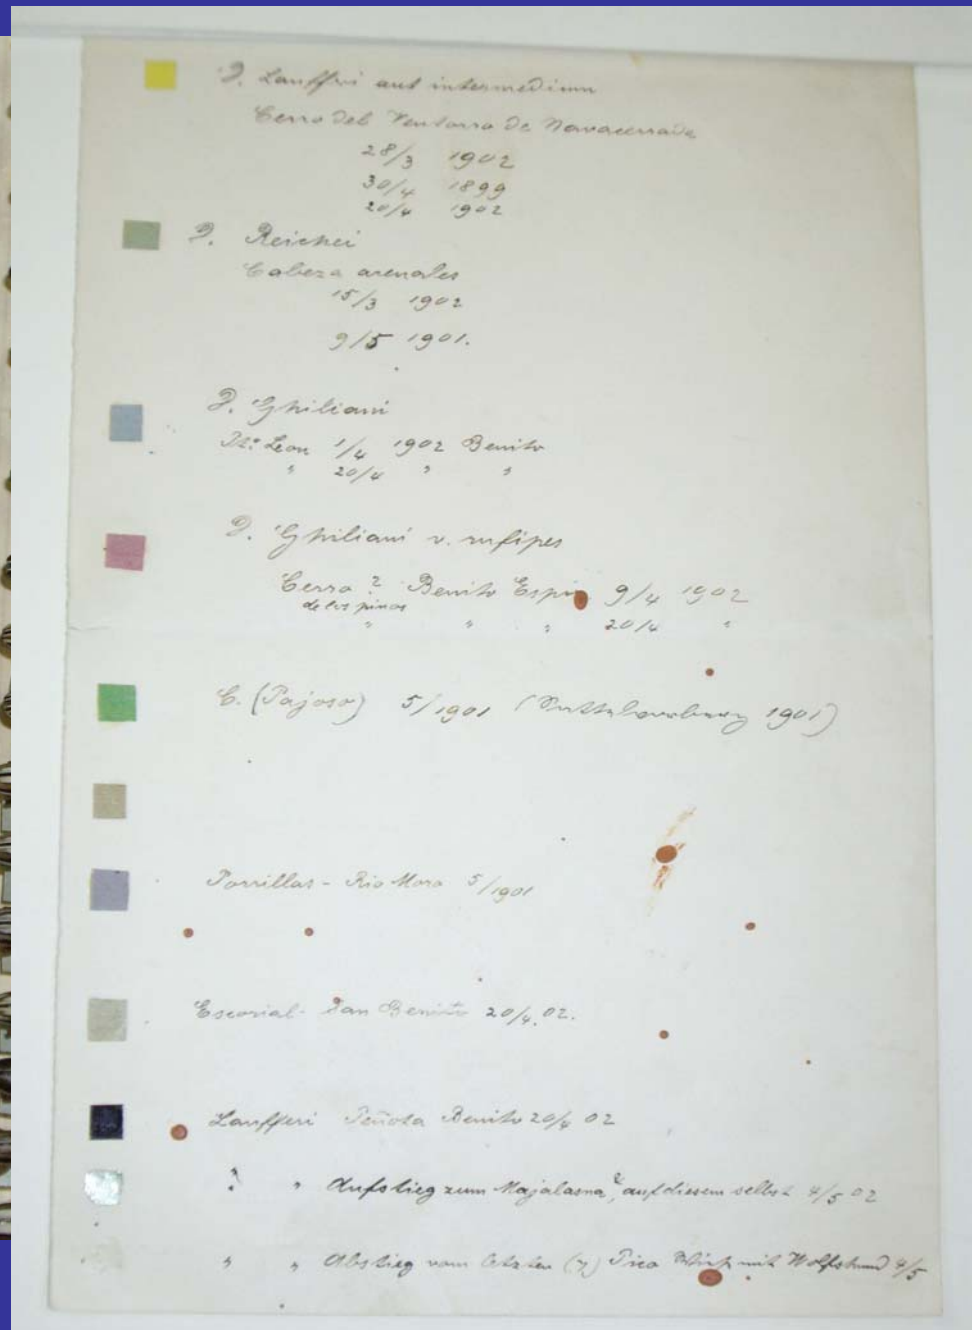 D. Laufferi aut intermedium
Cerro del Ventorro de Navacerrada
28/3 1902
30/4 1899
20/4 1902
D. Reichei
Cabeza arenales
15/3 1902
9/5 1901.
D. Ghiliani
Leon 1/4 1902 Benito
" 20/4 " "
D. Ghiliani v. rufipes
Cerro ? Benito Espin 9/4 1902
de los pinos
" " " 20/4 "
C. (Pajoso) 5/1901 ( 1901)
Porrillas - Rio Moro 5/1901
Escorial - San Benito 20/4. 02.
Laufferi Peñota Benito 20/4 02
? " Aufstieg zum Majalasna?, auf diesem selbst 4/5 02
" " Abstieg vom letzten (7) Pico mit Wolfshund 4/5